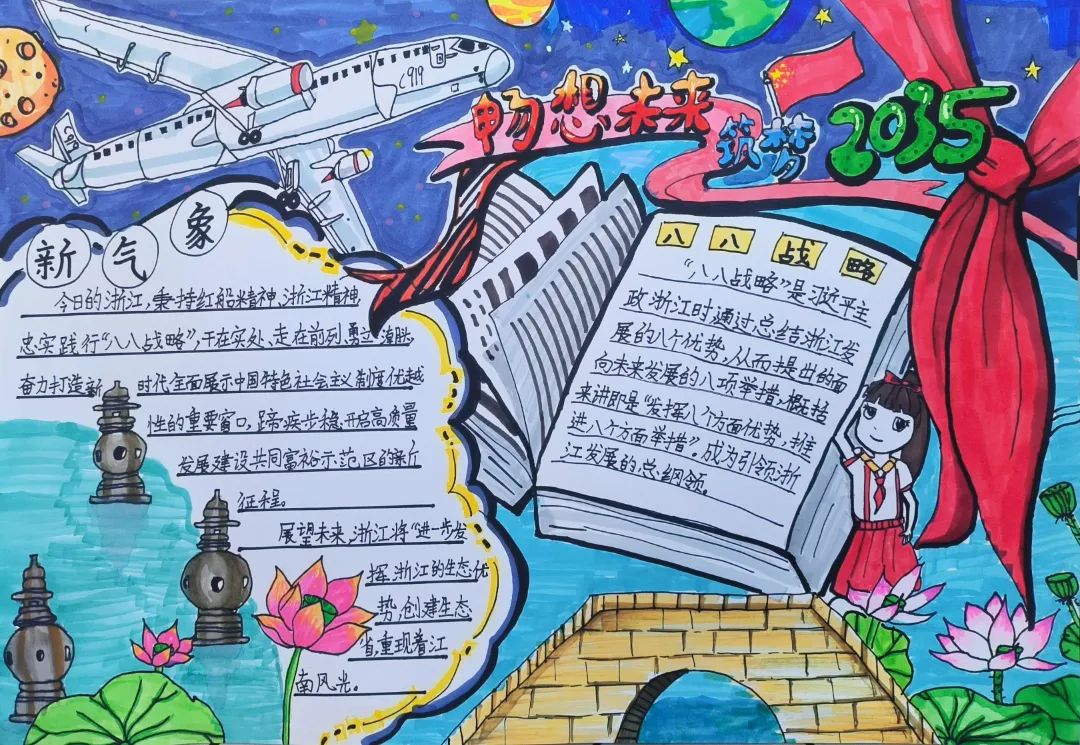 C919
C919
畅想未来
筑梦2035
新气象
今日的浙江,秉持红船精神、浙江精神,
忠实践行“八八战略”,干在实处、走在前列、勇立潮头,
奋力打造新时代全面展示中国特色社会主义制度优越
性的重要窗口,蹄疾步稳,开启高质量
发展建设共同富裕示范区的新
征程。
展望未来,浙江将“进一步发
挥浙江的生态优
势,创建生态
省,重现着江
南风光。
八八战略
“八八战略”是习近平主
政浙江时通过总结浙江发
展的八个优势,从而提出的面
向未来发展的八项举措,概括
来讲即是“发挥八个方面优势,推
进八个方面举措”。成为引领浙
江发展的总纲领。